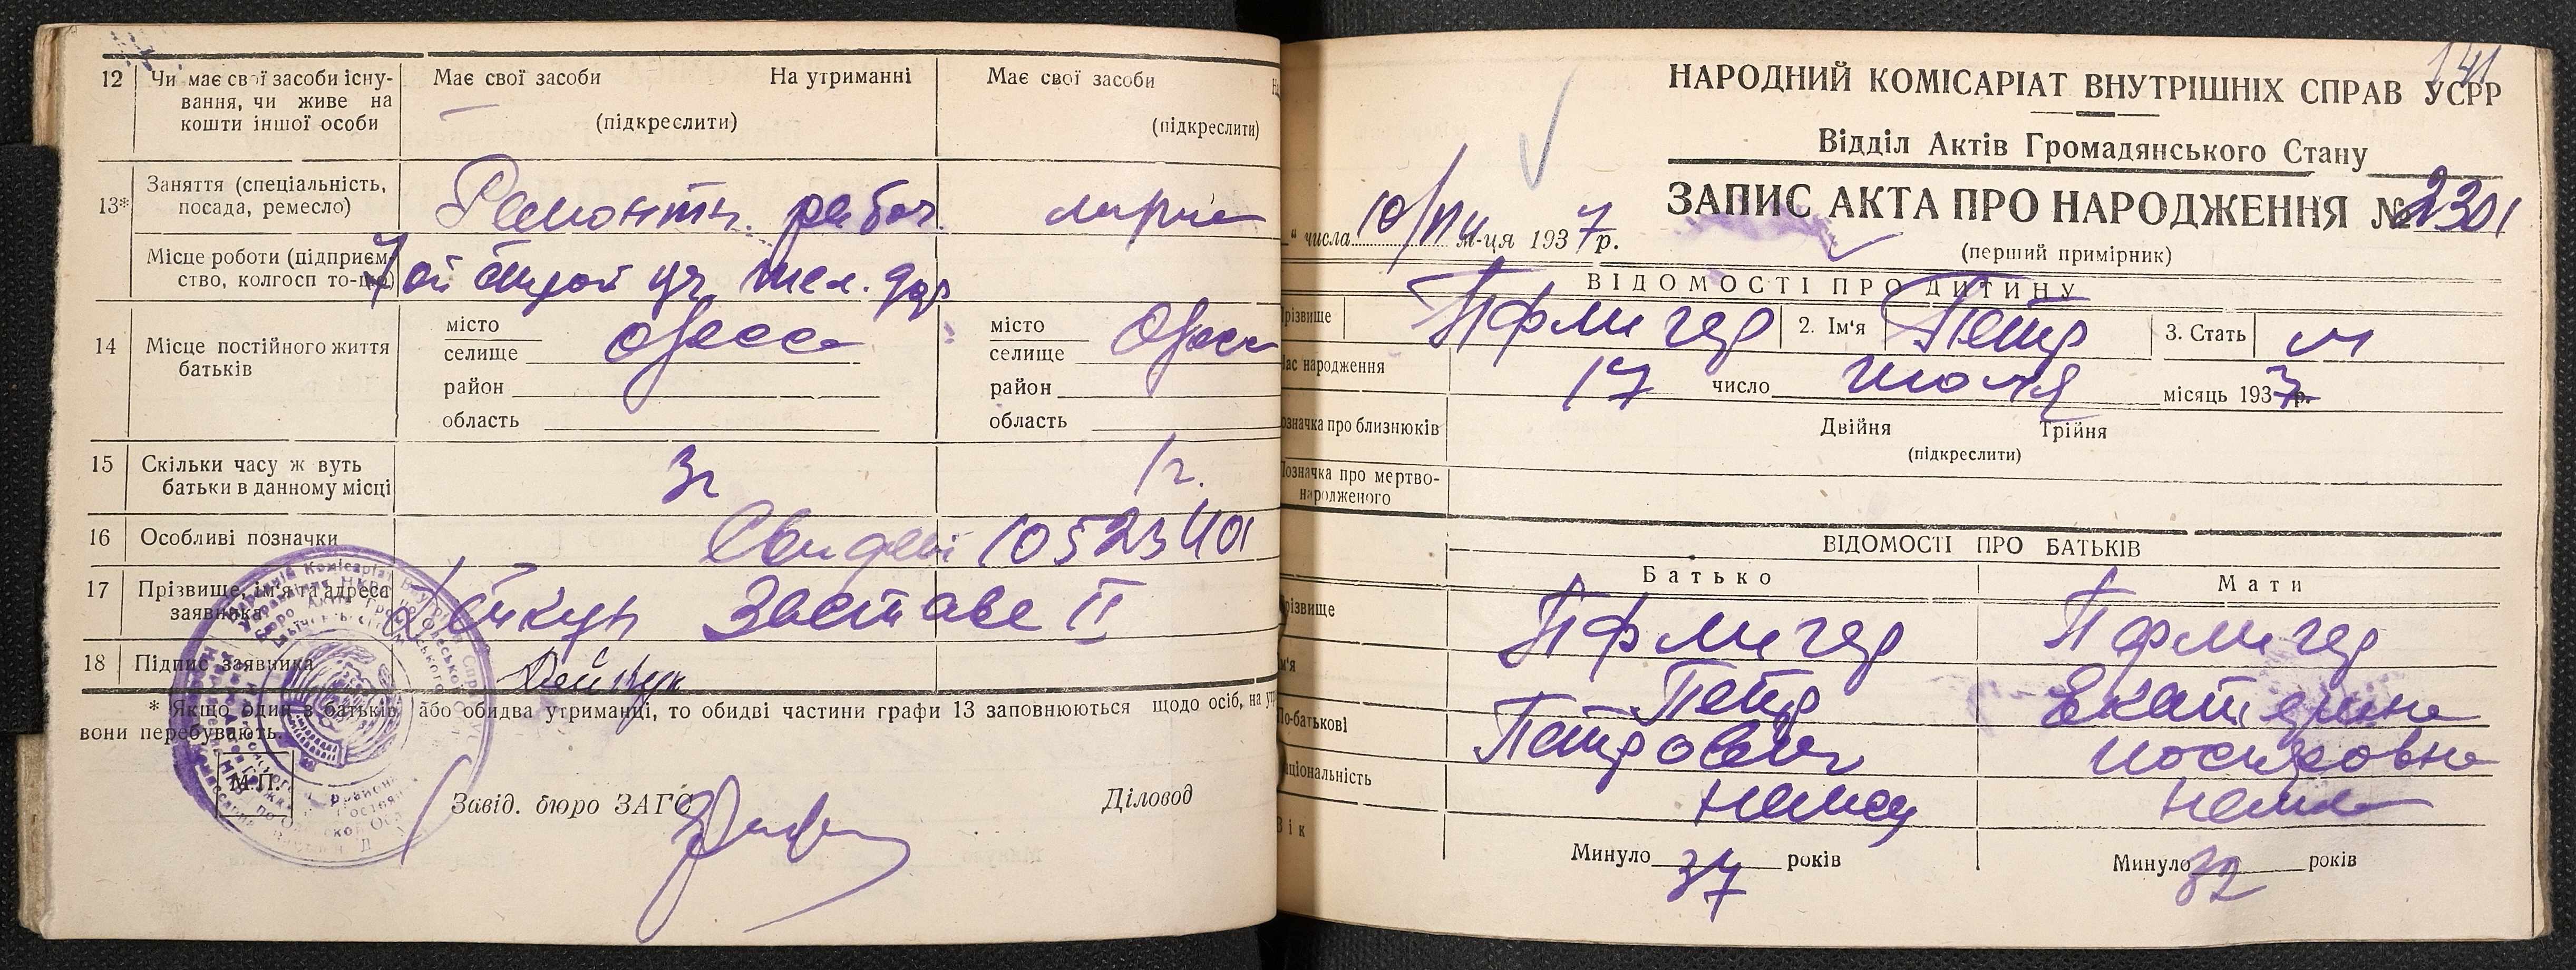 12 Чи має свої засоби існу-
вання, чи живе на
кошти іншої особи
Має свої засоби На утриманні
(підкреслити)
Має свої засоби
(підкреслити)
13* Заняття (спеціальність,
посада, ремесло)
Ремонтн. рабоч.
Місце роботи (підприєм-
ство, колгосп то-що)
жел. дор
14 Місце постійного життя
батьків
місто
селище Одесса
район
область
місто
селище Одесса
район
область
15 Скільки часу ж вуть
батьки в данному місці
3г 1г.
16 Особливі позначки
17 Прізвище, ім'я та адреса
заявника
Застава II
18 Підпис заявника
Дейкун
* Якщо один з батьків або обидва утриманці, то обидві частини графи 13 заповнюються щодо осіб, на
вони перебувають.
М.П.
Завід. бюро ЗАГС Діловод
141
НАРОДНИЙ КОМІСАРІАТ ВНУТРІШНІХ СПРАВ УСРР
Відділ Актів Громадянського Стану
ЗАПИС АКТА ПРО НАРОДЖЕННЯ № 2301
(перший примірник)
" числа 10/VIII м-ця 1937 р.
ВІДОМОСТІ ПРО ДИТИНУ
різвище Пфлигер 2. Ім'я Петр 3. Стать м
ас народження 17 число июля місяць 1937 р.
означка про близнюків Двійня Трійня
(підкреслити)
Позначка про мертво-
народженого
ВІДОМОСТІ ПРО БАТЬКІВ
Батько Мати
різвище Пфлигер Пфлигер
м'я Петр Екатерина
По-батькові Петрович Иосифовна
аціональність немец немка
Вік
Минуло 37 років Минуло 32 років